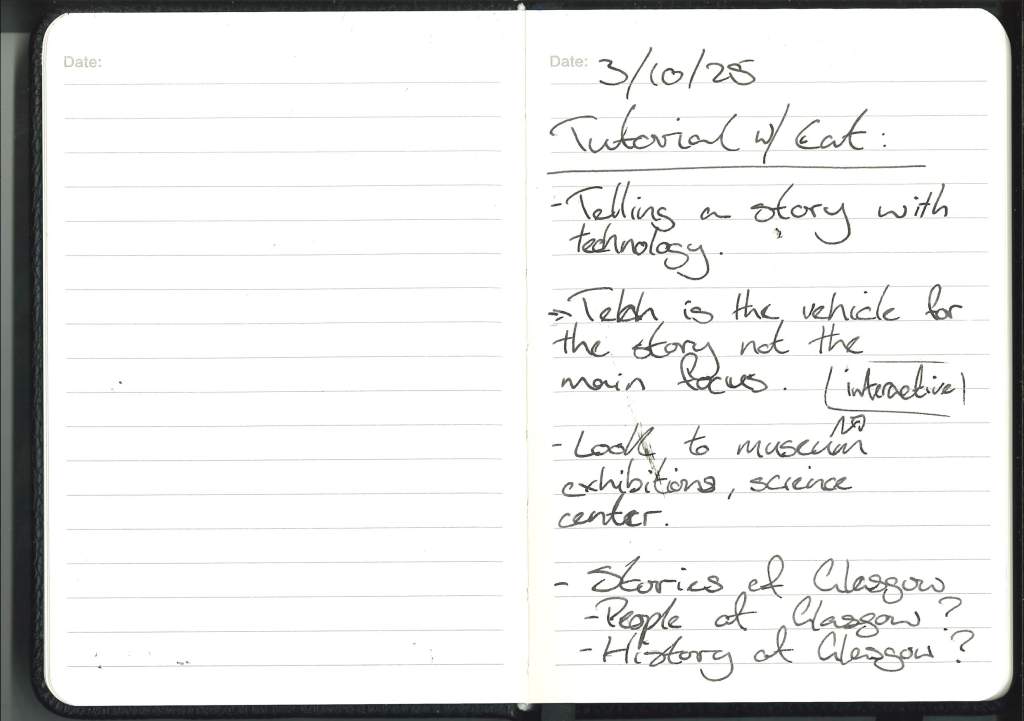 Date:
Date: 3/10/25
Tutorial w/ Cat:
- Telling a story with
technology.
Tech is the vehicle for
the story not the
main focus. (interactive)
- Look to museum
exhibitions, science
center.
- Stories of Glasgow
- People of Glasgow?
- History of Glasgow?